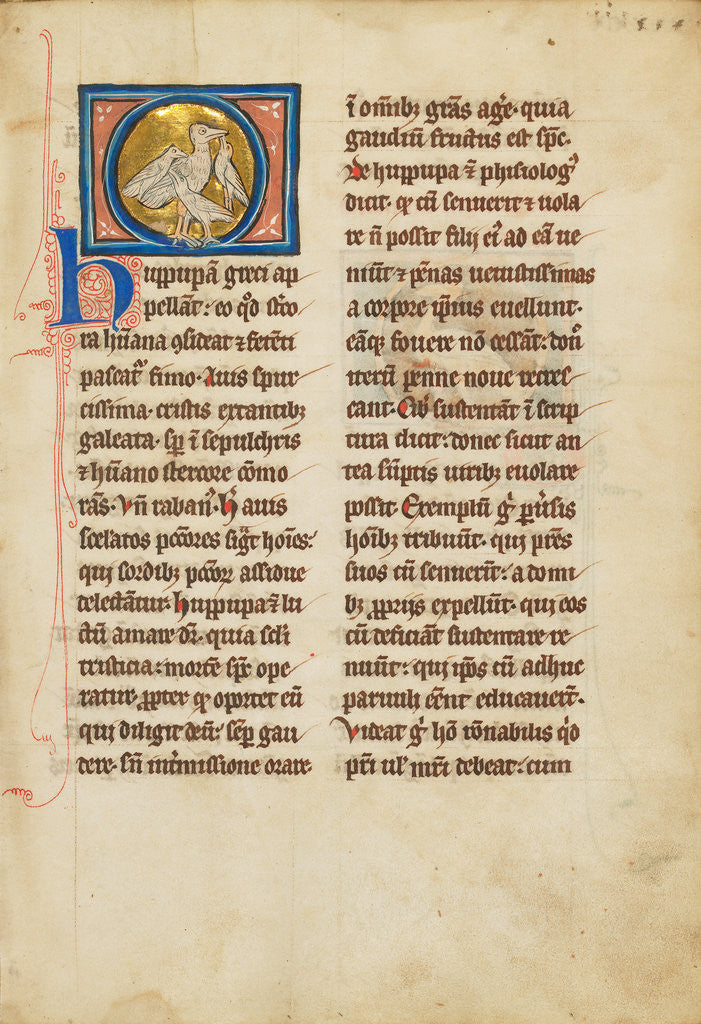 Huppupā greci ap
pellāt: eo qd̄ sterco
ra hūana ꝯsideat ⁊ fetēti
pascat᷑ fimo. Auis spur
cissima. cristis extantibꝫ
galeata. sp̄ ī sepulchris
⁊ hūano stercore cōmo
rās. Vn̄ raban⁹. H̄ auis
scelatos pctōres sigͣt hoīes:
qui sordibꝫ pctōꝝ assidue
delectāt᷑. Huppupa ⁊ lu
ctū amare dr̄. quia scl̄i
tristicia: mortē sp̄c ope
ratur. ꝓpter qḋ oportet eū
qui diligit deū: sēꝑ gau
dere. sn̄ int̓missione orare.
ī omībꝫ grās ag̓e. quia
gaudiū fructus est sp̄c.
De huppupa ⁊ phisiolog⁹
dicit. qḋ cū senuerit ⁊ uola
re n̄ possit filij ei⁹ ad eā ue
niūt ⁊ pēnas uetustissimas
a corpore ip̄ius euellunt.
eāqꝫ fouere nō cessāt: don̓
iterū penne noue recres
cant. Cib̓ sustentāt ī scrip
tura dicit: donec sicut an
tea sūptis uiribꝫ euolare
possit. Exemplū gͥ ꝑuersis
hoībꝫ tribuūt. qui p̄res
suos cū senuerīt: a domi
bꝫ ꝓprijs expellūt. qui eos
cū deficiāt sustentare re
nuūt: qui ip̄os cū adhuc
paruuli eēnt educauerīt.
Videat gͥ hō rōnabilis qͥd
pr̄i ul̓ mr̄i debeat: cum